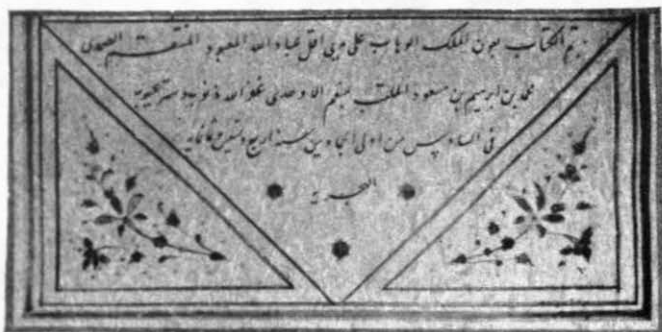 تم الكتاب بعون الملك الوهاب على يدى اقل عباد الله المعبود المفتقر الصمدى
محمد بن ابرهيم بن مسعود الملقب بمقيم الاوحدى غفر الله ذنوبه وستر عيوبه
فى السادس من اولى الجمادين سنة اربع وستين وثمانمايه
الهجريه